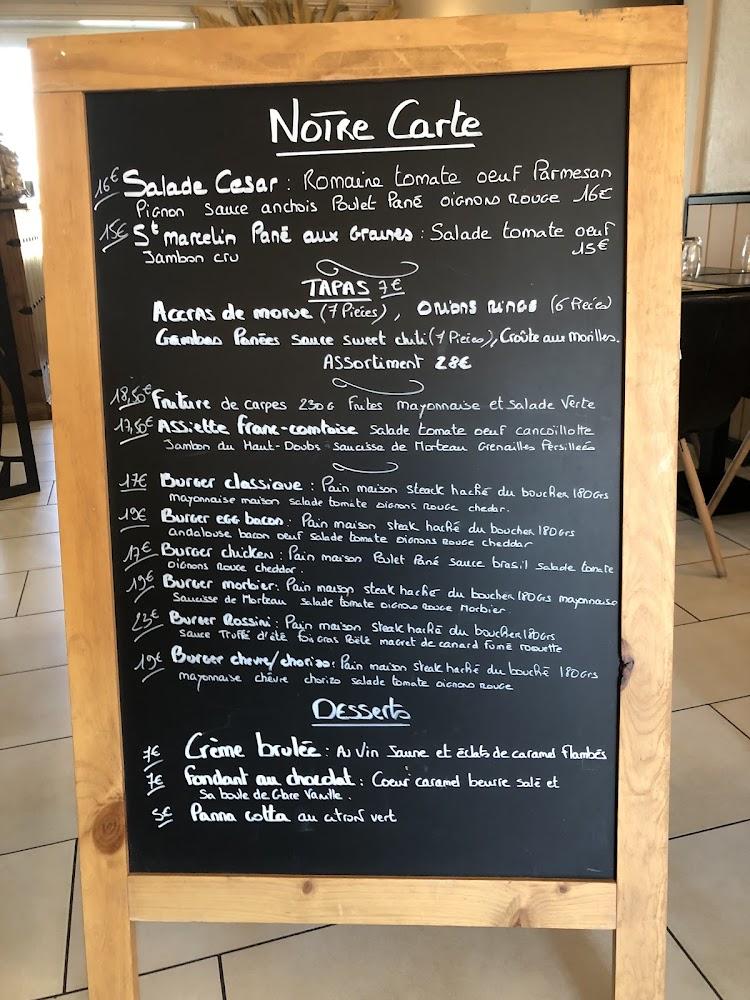 NOTRE Carte
16€ Salade Cesar : Romaine tomate oeuf Parmesan
Pignon sauce anchois Poulet Pané oignons rouge 16€
15€ St marcelin Pané aux Graines : Salade tomate oeuf
Jambon cru 15€
TAPAS 7€
Accras de morue (7 Pieces), Onions Rings (6 Pieces)
Gambas Panées sauce sweet chili (7 Pieces), Croûte aux Morilles.
Assortiment 28€
18,50€ Friture de carpes 230G frites mayonnaise et salade verte
17,50€ Assiette franc-comtoise salade tomate oeuf cancoillotte
Jambon du Haut-Doubs saucisse de Morteau Grenailles Persillées
17€ Burger classique : Pain maison steack haché du boucher 180grs
mayonnaise maison salade tomate oignons rouge chedar.
19€ Burger egg bacon : Pain maison steak haché du boucher 180grs
andalouse bacon oeuf salade tomate oignons rouge cheddar
17€ Burger chicken : Pain maison Poulet Pané sauce bresil salade tomate
oignons rouge cheddar.
19€ Burger morbier : Pain maison steak haché du boucher 180grs mayonnaise
Saucisse de Morteau salade tomate oignons rouge Morbier.
23€ Burger Rossini : Pain maison steak haché du boucher 180grs
sauce Truffe d'été fois gras Poêlé magret de canard fumé roquette
19€ Burger chevre/chorizo : Pain maison steak haché du bouché 180grs
mayonnaise chèvre chorizo salade tomate oignons rouge
Desserts
7€ Crème brulée : Au Vin Jaune et éclats de caramel flambés
7€ Fondant au chocolat : Coeur caramel beurre salé et
Sa boule de Glace Vanille.
5€ Panna cotta au citron vert